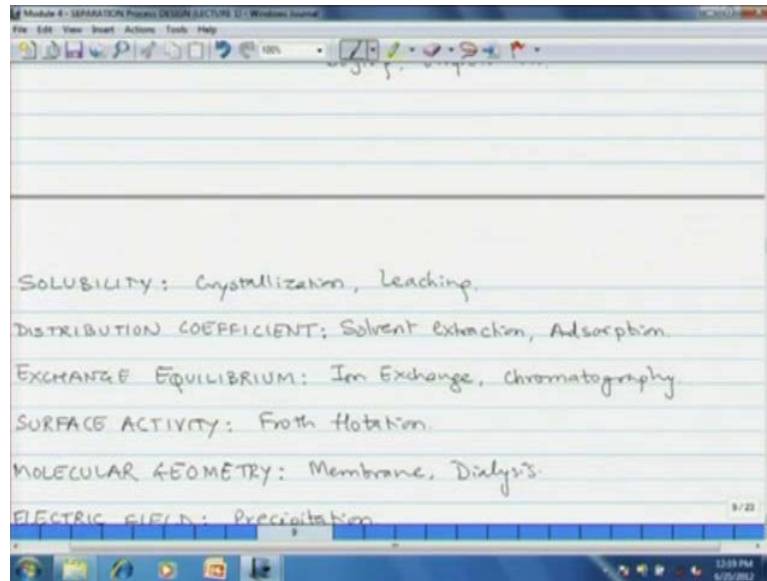 Module 4 - SEPARATION Process DESIGN (LECTURE 1) - Windows Journal
File Edit View Insert Actions Tools Help
100%
SOLUBILITY: Crystallization, Leaching.
DISTRIBUTION COEFFICIENT: Solvent extraction, Adsorption.
EXCHANGE EQUILIBRIUM: Ion Exchange, chromatography
SURFACE ACTIVITY: Froth flotation.
MOLECULAR GEOMETRY: Membrane, Dialysis.
ELECTRIC FIELD: Precipitation
9/23
9
12:09 PM
6/25/2012